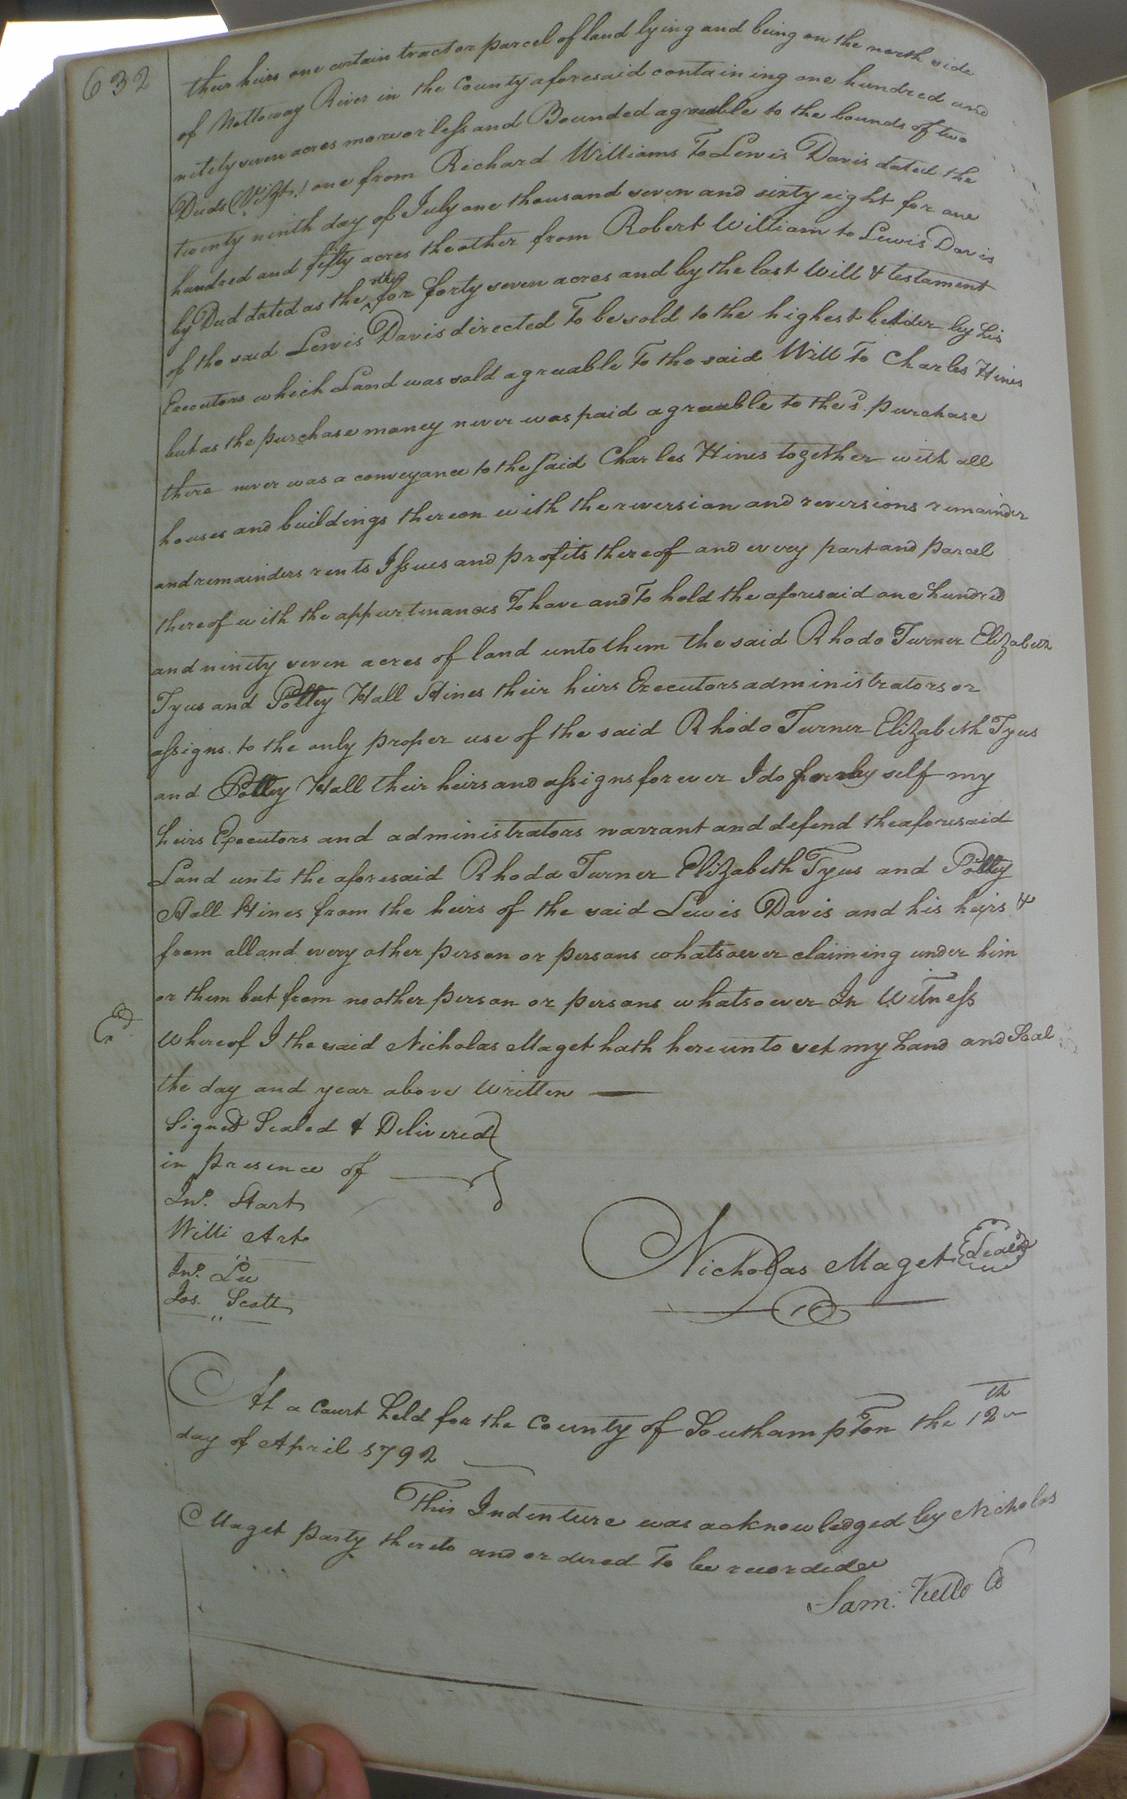 632
their heirs one certain tract or parcel of land lying and being on the north side
of Nottoway River in the County aforesaid containing one hundred and
ninety seven acres more or less and Bounded agreeable to the bounds of two
Deeds (Vizt.) one from Richard Williams To Lewis Davis dated the
twenty ninth day of July one thousand seven and sixty eight for one
hundred and fifty acres the other from Robert William to Lewis Davis
by Deed dated as the other for forty seven acres and by the last Will & testament
of the said Lewis Davis directed To be sold to the highest bidder by his
Executors which Land was sold agreeable To the said Will To Charles Hines
but as the purchase money never was paid agreeable to the sd. purchase
there never was a conveyance to the said Charles Hines together with all
houses and buildings thereon with the reversion and reversions remainder
and remainders rents Issues and profits thereof and every part and parcel
thereof with the appurtenances To have and To hold the aforesaid one hundred
and ninety seven acres of land unto them the said Rhoda Turner Elizabeth
Tyus and Polley Hall Hines their heirs Executors administrators or
assigns to the only proper use of the said Rhoda Turner Elizabeth Tyus
and Polley Hall their heirs and assigns forever I do for my self my
heirs Executors and administrators warrant and defend the aforesaid
Land unto the aforesaid Rhoda Turner Elizabeth Tyus and Polley
Hall Hines from the heirs of the said Lewis Davis and his heirs &
from all and every other person or persons whatsoever claiming under him
or them but from no other person or persons whatsoever In Witness
Whereof I the said Nicholas Maget hath hereunto set my hand and Seal
the day and year above Written
Signed Sealed & Delivered
in presence of
Jno. Hart
Willi Art
Jno. Lee
Jos. Scott
Nicholas Maget Seal
At a Court held for the County of Southampton the 12th
day of April 1792
This Indenture was acknowledged by Nicholas
Maget party thereto and ordered To be recorded
Sam: Kello C